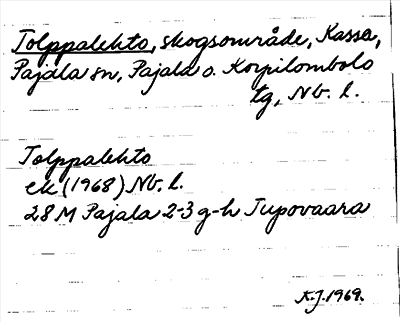 Tolppalehto, skogsområde, Kassa,
Pajala sn, Pajala o. Korpilombolo
tg, Nb. l.
Tolppalehto
ek (1968) Nb. l.
28 M Pajala 2-3 g-h Jupovaara
K.J. 1969.